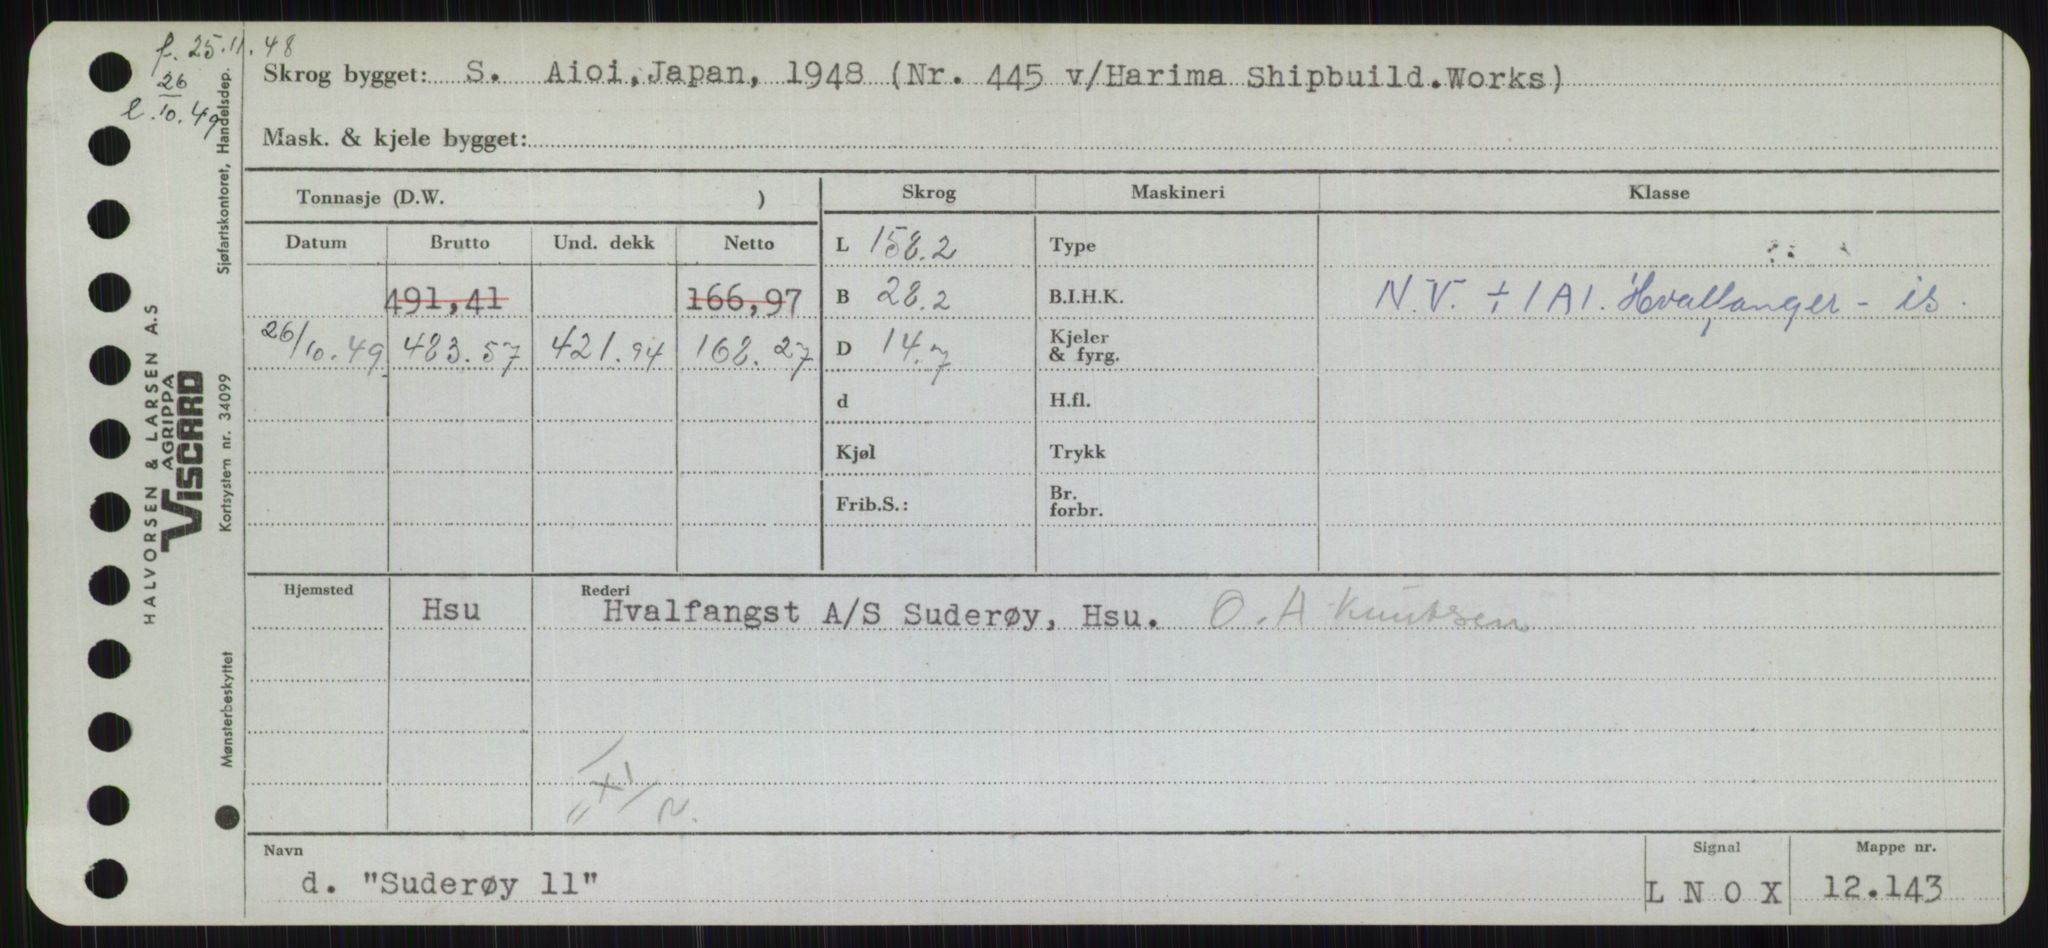 f. 25.11.48
26
l. 10.49
Skrog bygget: S. Aioi, Japan, 1948 (Nr. 445 v/Harima Shipbuild.Works)
Mask. & kjele bygget:
Tonnasje (D.W. )
Skrog
Maskineri
Klasse
Datum Brutto Und. dekk Netto
L 158.2
Type
491,41 166,97
B 28.2
B.I.H.K.
N.V. + 1A1. Hvalfanger - is.
26/10.49 483.57 421.94 168.27
D 14.7
Kjeler
& fyrg.
d
H.fl.
Kjøl
Trykk
Frib.S.:
Br.
forbr.
Hjemsted
Rederi
Hsu Hvalfangst A/S Suderøy, Hsu. O. A Knutsen
Navn
d. "Suderøy 11"
Signal
L N O X
Mappe nr.
12.143
HALVORSEN & LARSEN A.S
AGRIPPA
VISCARD
Mønsterbeskyttet Kortsystem nr. 34099 Sjøfartskontoret, Handelsdep.